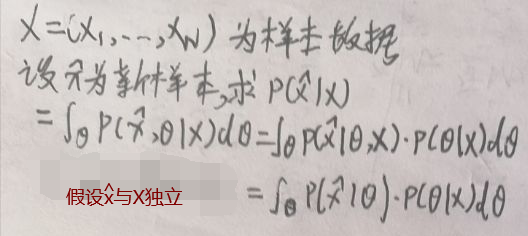 X=(x₁,...,x_N)为样本数据
设x̂为新样本,求P(x̂|X)
=∫_θ P(x̂,θ|X)dθ=∫_θ P(x̂|θ,X)·P(θ|X)dθ
假设x̂与X独立 =∫_θ P(x̂|θ)·P(θ|X)dθ